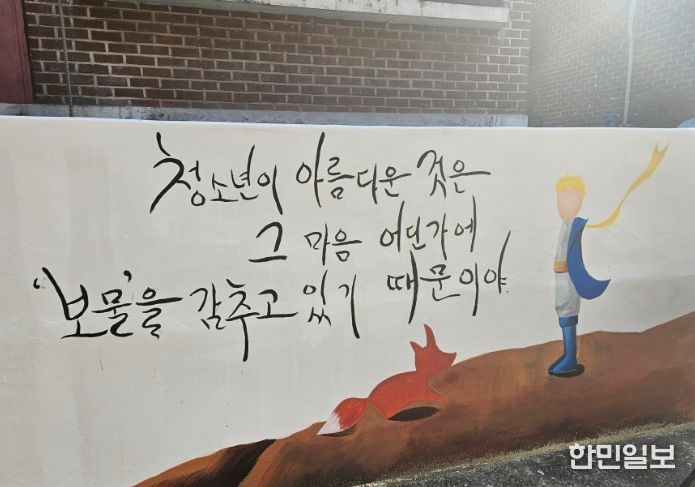 청소년이 아름다운 것은
그 마음 어딘가에
'보물'을 감추고 있기 때문이야
한민일보